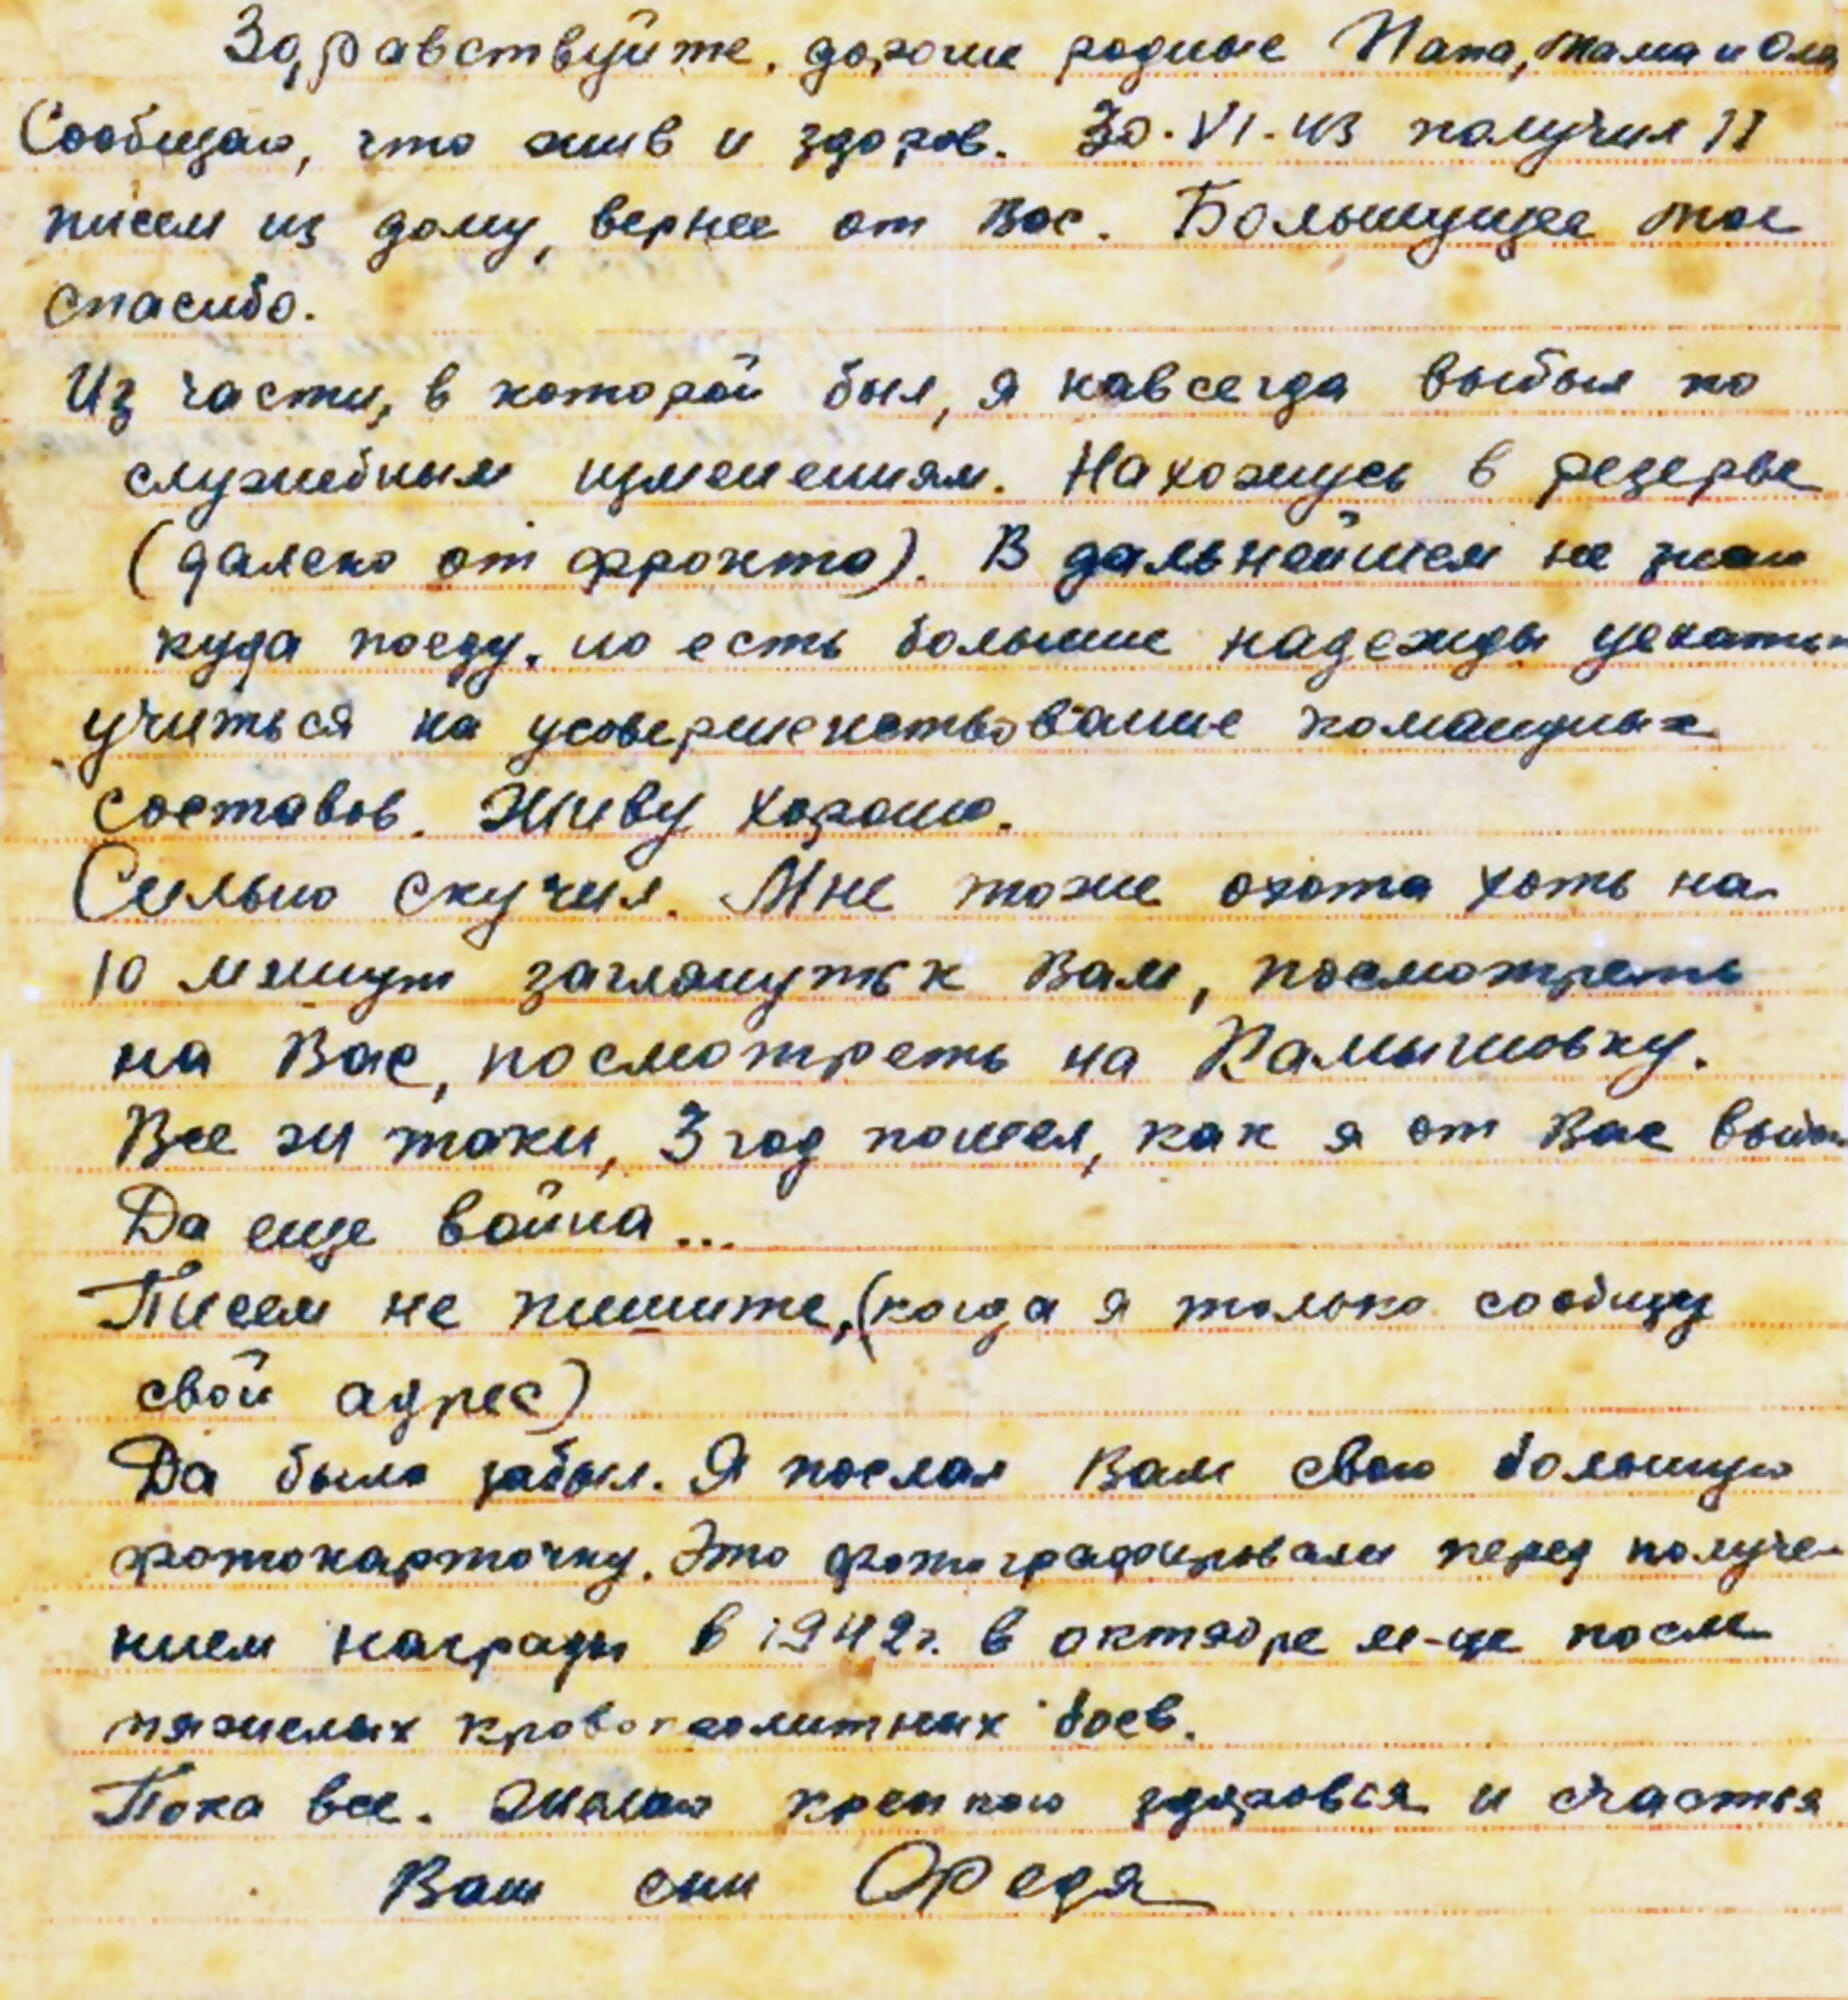 Здравствуйте, дорогие родные Папа, Мама и Оля
Сообщаю, что жив и здоров. 30.VI.43 получил 11
писем из дому, вернее от Вас. Большущее мое
спасибо.
Из части, в которой был, я навсегда выбыл по
служебным изменениям. Нахожусь в резерве
(далеко от фронта). В дальнейшем не знаю
куда поеду, но есть большие надежды уехать
учиться на усовершенствование командных
составов. Живу хорошо.
Сильно скучил. Мне тоже охота хоть на
10 минут заглянуть к Вам, посмотреть
на Вас, посмотреть на Камышовку.
Все ж таки, 3 год пошел, как я от Вас выбыл
Да еще война...
Писем не пишите, (когда я только сообщу
свой адрес)
Да было забыл. Я послал Вам свою большую
фотокарточку. Это фотографировали перед получе-
нием награды в 1942г. в октябре м-це после
тяжелых кровопролитных боев.
Пока все. Желаю крепкого здоровья и счастья
Ваш сын Федя